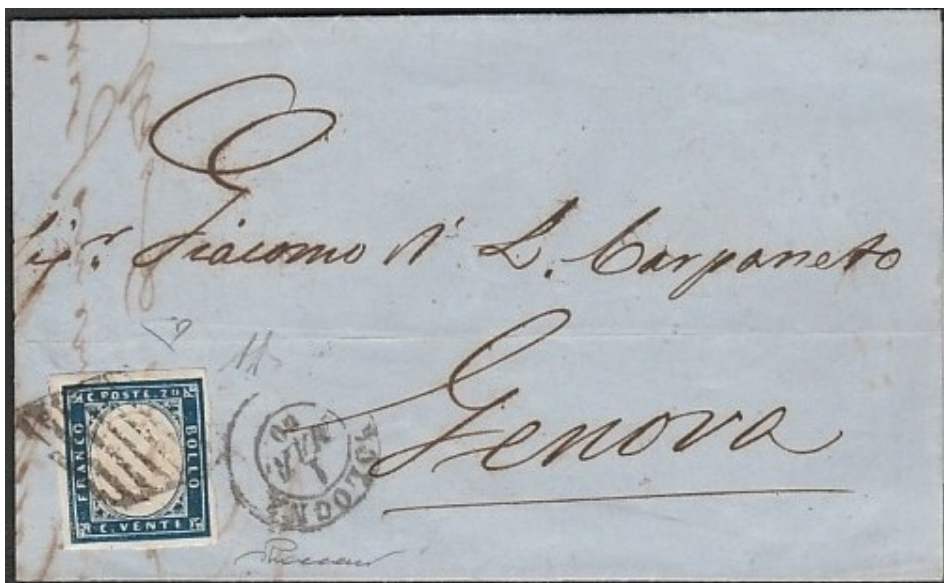 Sigr. Giacomo di L. Carpaneto
Genova
C. POSTE. 20
FRANCO
BOLLO
C. VENTI
BOLOGNA
1
MAR
60